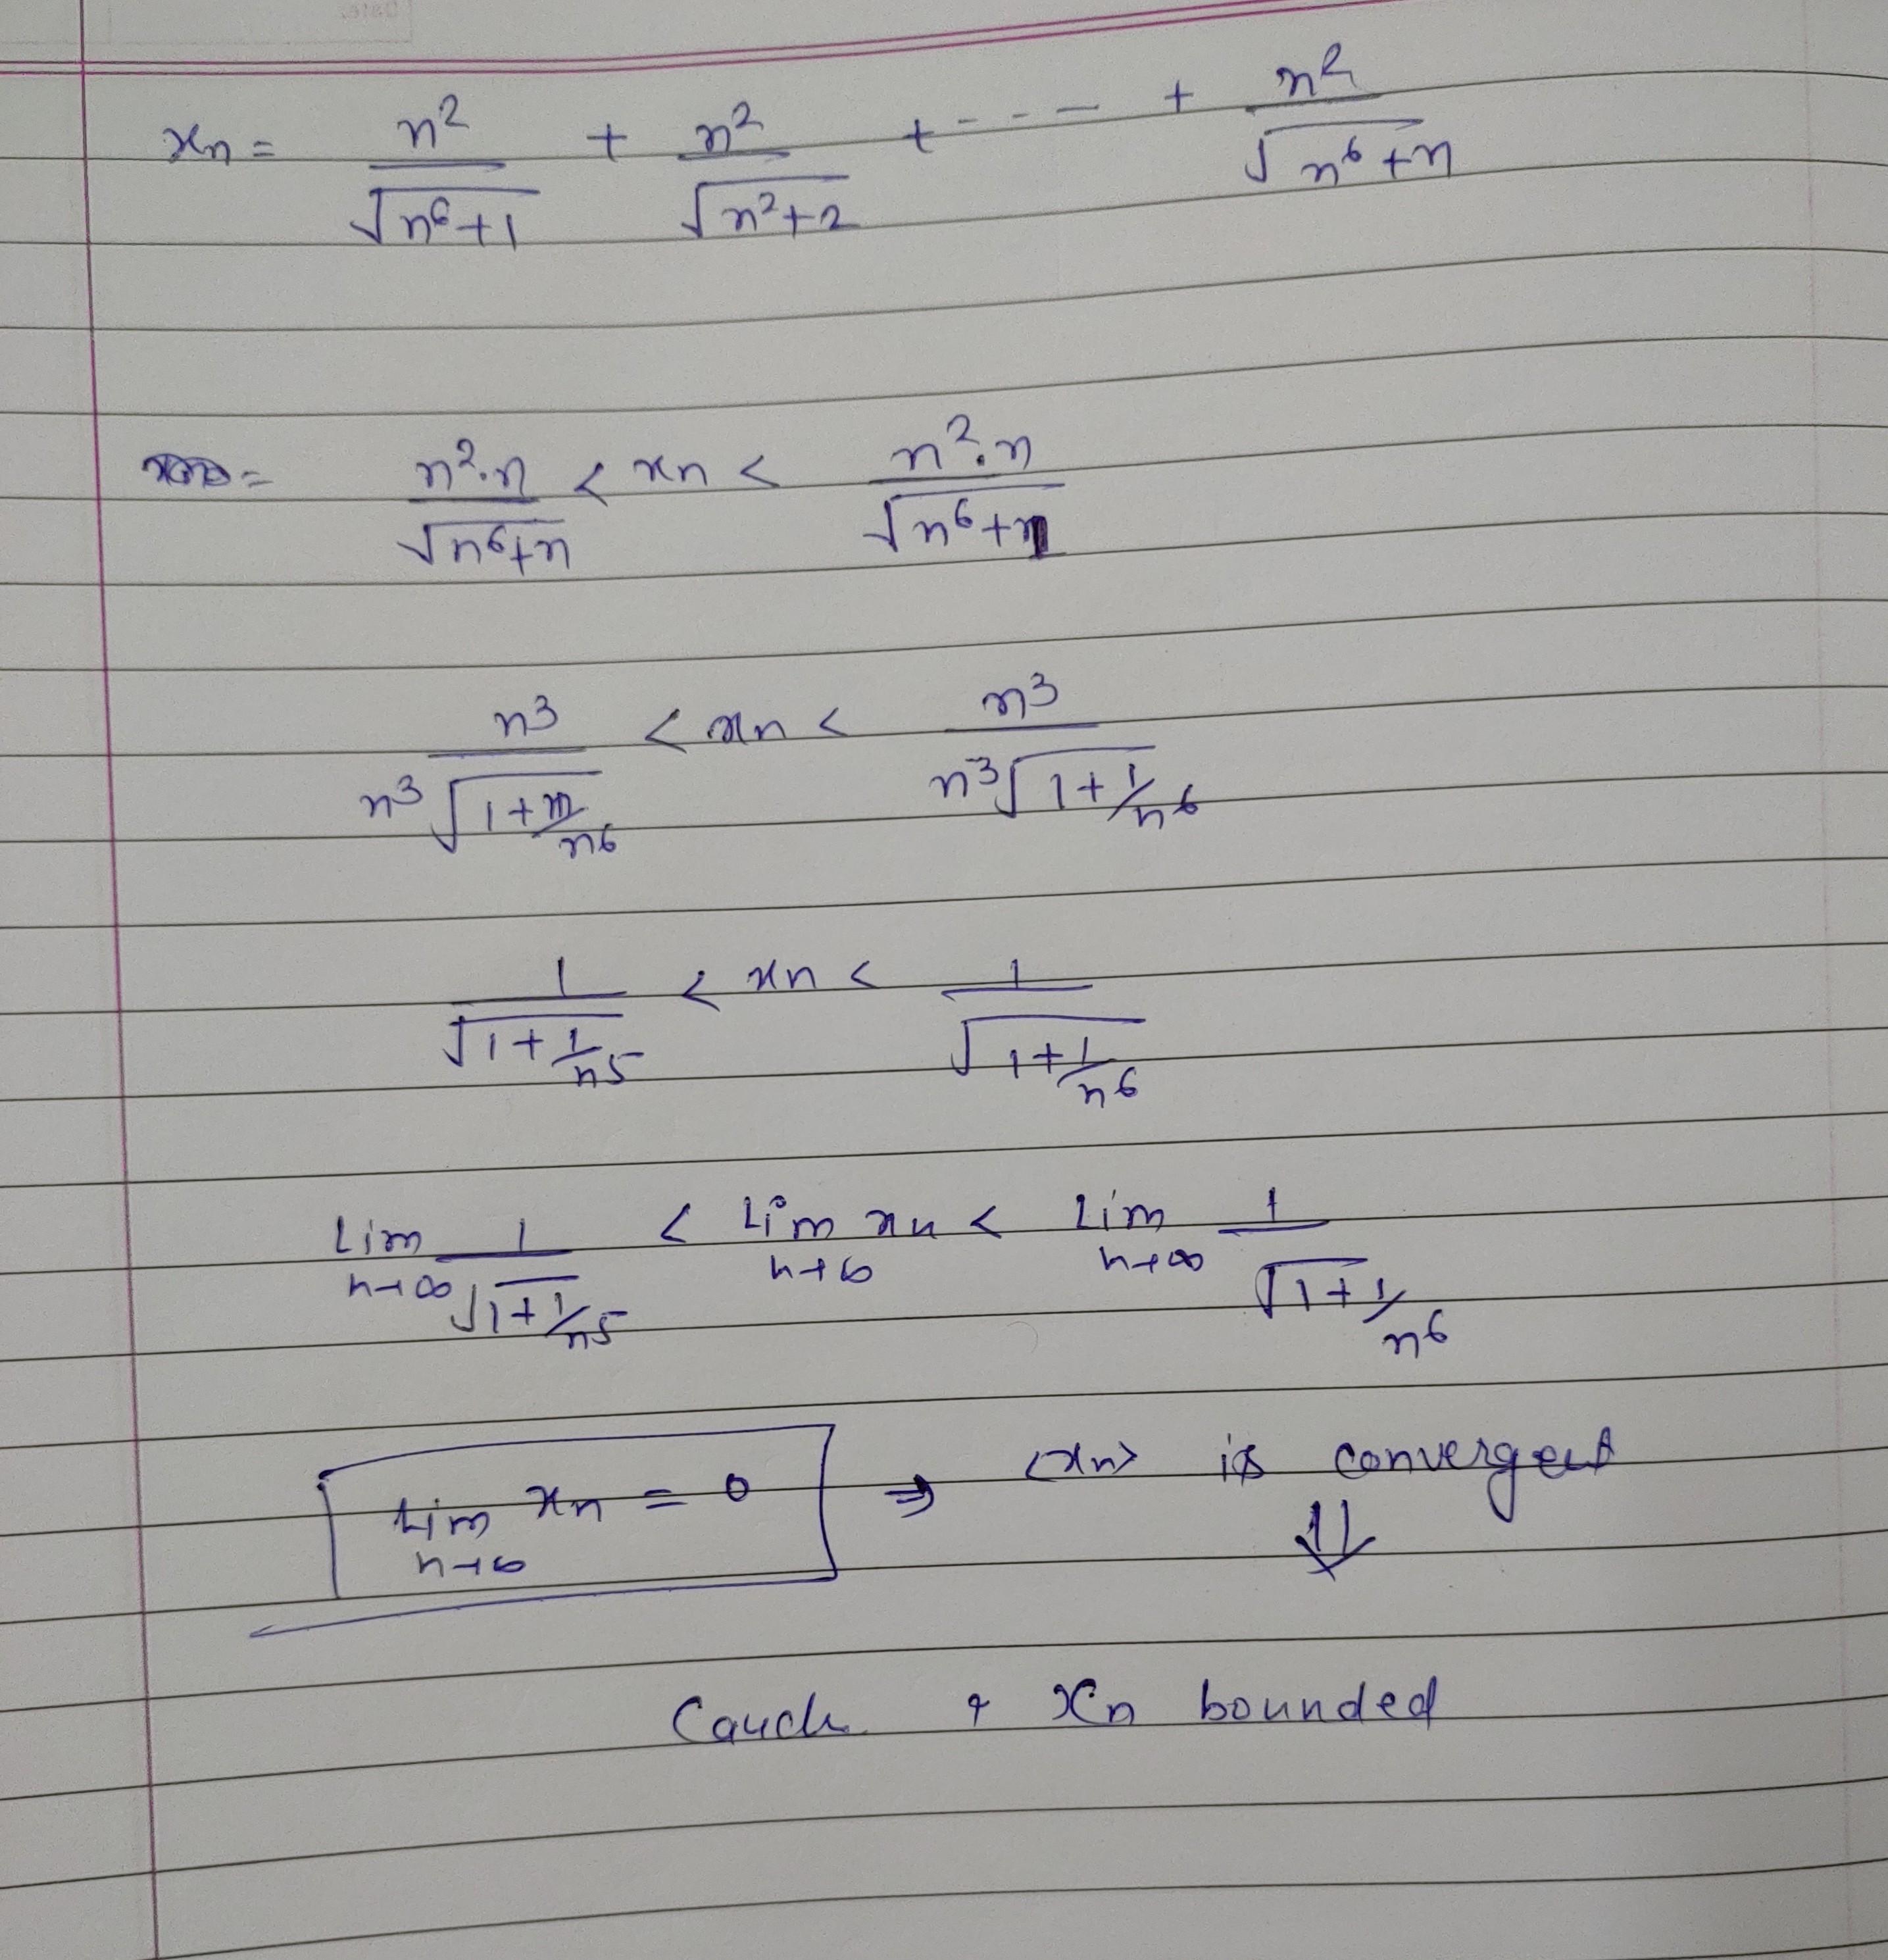 Date:
xn = n²/√(n⁶+1) + n²/√(n²+2) + - - - + n²/√(n⁶+n)
= n².n/√(n⁶+n) < xn < n².n/√(n⁶+1)
n³/(n³√(1+n/n⁶)) < xn < n³/(n³√(1+1/n⁶))
1/√(1+1/n5) < xn < 1/√(1+1/n6)
Lim n→∞ 1/√(1+1/n5) < Lim n→∞ xn < Lim n→∞ 1/√(1+1/n6)
Lim n→∞ xn = 0 ⇒ <xn> is convergent
⇓
Cauch & Xn bounded